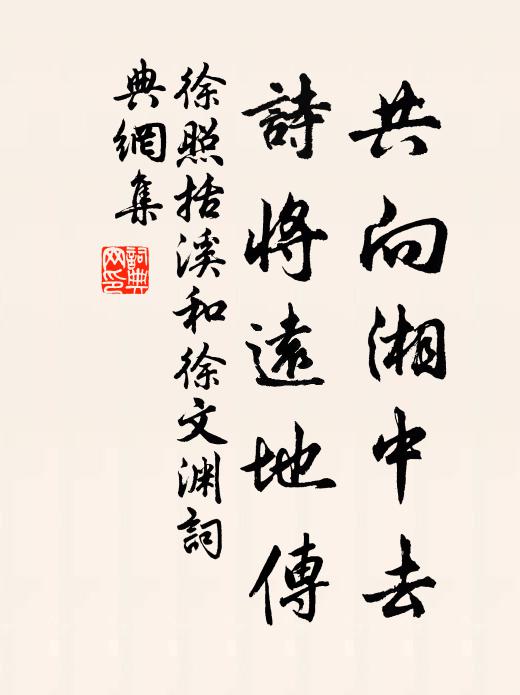 共向湘中去
詩將遠地傳
徐照括溪和徐文淵詞
典網集
詞典
网印